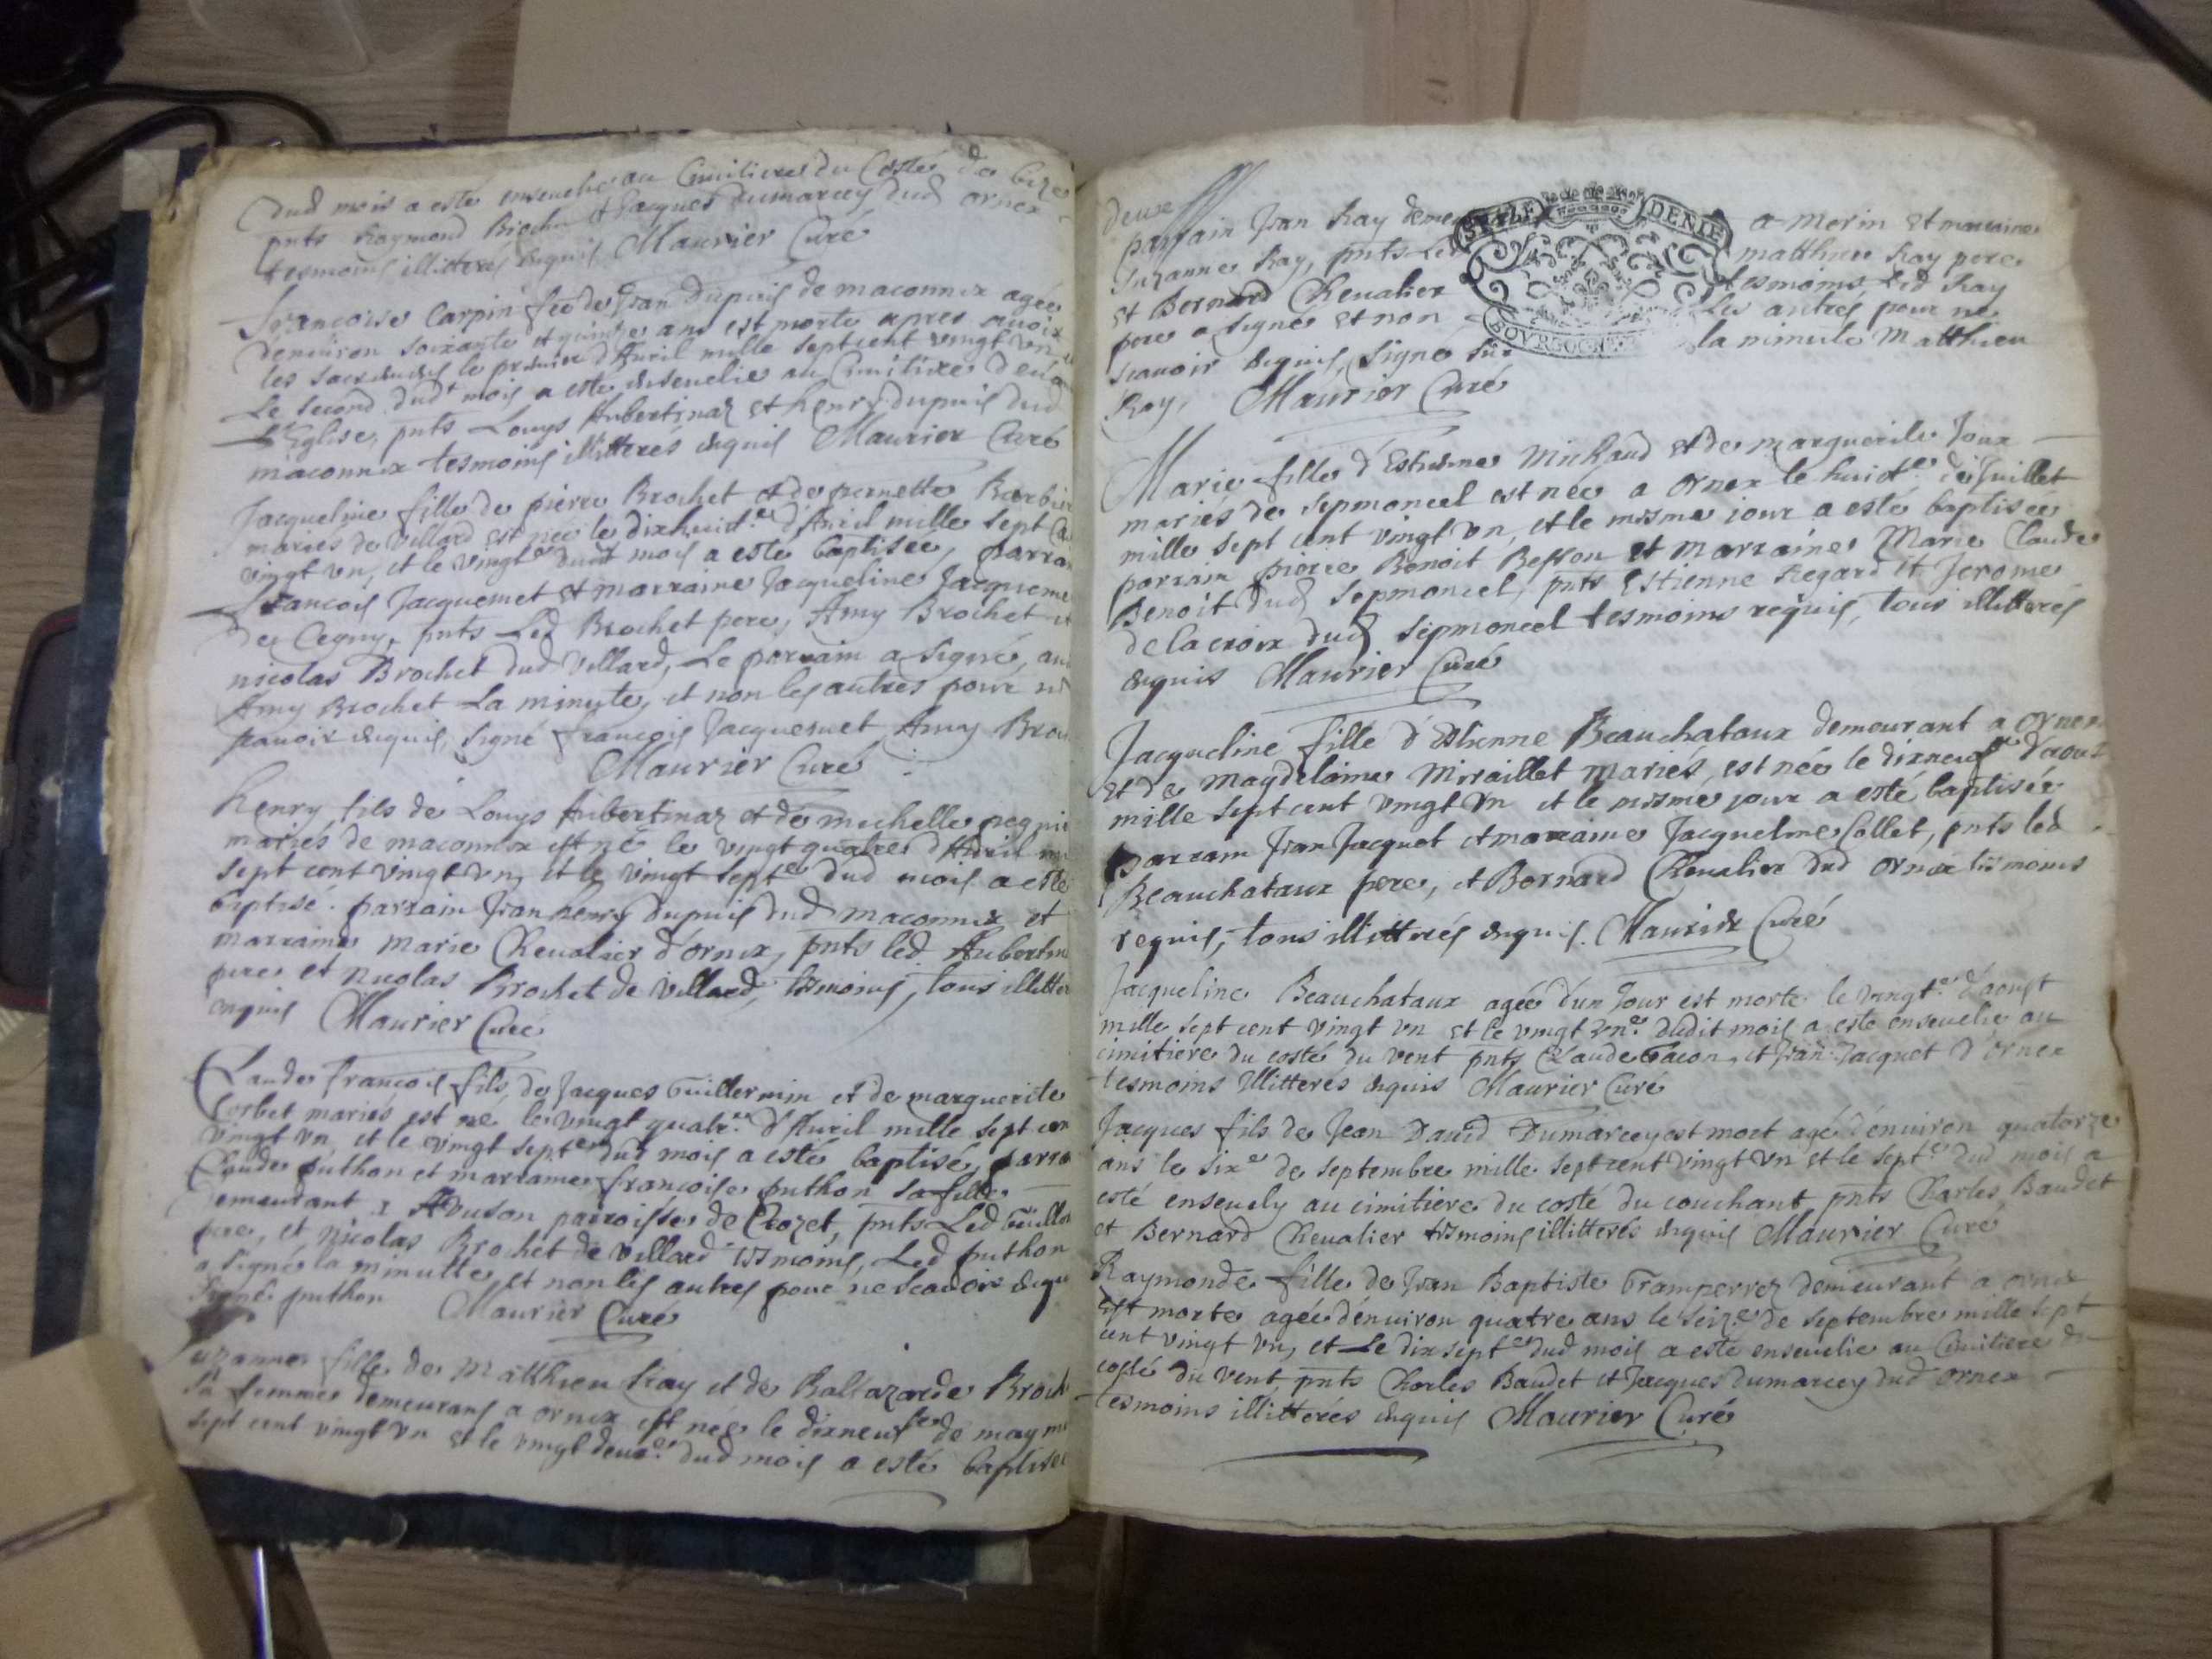 dud mois a esté enseuelie au Cimitiere du Costé de bize
pnts Raymond Brochet et Jacques Dumarcey dud ornex
tesmoins illitteres enquis Maurier Curé
Francoise Carpin feé de Jean Dupuis de maconnex agée
d'enuiron soixante et quinze ans est morte apres auoir
les sacremens le premier d'Auril mille sept cent vingt vn
Le second dudt mois a esté enseuelie au Cimitiere
L'Eglise, pnts Louys Aubertinaz et henry dupuis dud
maconnex tesmoins illitterés enquis Maurier Curé
Jacqueline fille de pierre Brochet et de pernette Barbier
mariés de Villard est née le dixhuit.e d'Auril mille sept
vingt vn, et le vingt.e dudt mois a esté baptisée, parra
Francois Jacquemet et marraine Jacqueline Jacqueme
de Cegny, pnts Led Brochet pere, Amy Brochet et
nicolas Brochet dud Villard, Le parrain a signé,
Amy Brochet La minute, et non les autres pour ne
scauoir enquis, signé francois Jacquemet Amy Bro
Maurier Curé
henry fils de Louys Aubertinaz et de michelle
mariés de maconnex est né le vingt quatre d'Auril
sept cent vingt vn, et le vingt sept.e dud mois a esté
baptisé. parrain Jean henry dupuis dud maconnex et
marraine marie Cheualier d'ornex, pnts led Aubertin
pere et nicolas Brochet de Villard, tesmoins, tous illitter
enquis Maurier Curé
Claude francois fils de Jacques Guillermin et de marguerite
Corbet mariés est né le vingt quatr.e d'Auril mille sept cen
vingt vn, et le vingt sept.e dud mois a esté baptisé, parra
Claude puthon et marraine francoise puthon sa fille
demeurant a Auuson parroisse de Crozet, pnts Led Guiller
pere, et nicolas Brochet de Villard tesmoins, Led puthon
a signé la minutte, et non les autres pour ne scauoir enqu
signé puthon Maurier Curé
Suzanne fille de Matthieu Ray et de Baltazarde Broch
sa femme demeurans a ornex est née le dixneuf.e de may
sept cent vingt vn et le vingt deux.e dud mois a esté baptisée
deux
parrain Jean Ray a Morin et marraine
Suzanne Ray, pnts Led matthieu Ray pere
et Bernard Cheualier tesmoins Led Ray
pere a signé et non Les autres pour ne
scauoir enquis, signé sur la minute Matthieu
Ray, Maurier Curé
DENIE
Marie fille d'Estienne Michaud et de marguerite Joux
mariés de sepmoncel est née a ornex le huict.e de Juillet
mille sept cent vingt vn, et le mesme jour a esté baptisée
parrain pierre Benoit Besson et marraine Marie Claude
Benoit dud sepmoncel, pnts Estienne Regard et Jerome
delacroix dud sepmoncel tesmoins requis, tous illitterés
enquis Maurier Curé
Jacqueline fille d'Estienne Beauchataux demeurant a ornex
et de Magdelaine Miraillet mariés, est née le dixneuf.e d'aout
mille sept cent vingt vn et le mesme jour a esté baptisée
Parrain Jean Jacquet et marraine Jacqueline Collet, pnts led
Beauchataux pere, et Bernard Cheualier dud ornex tesmoins
requis, tous illitterés enquis. Maurier Curé
Jacqueline Beauchataux agée d'un Jour est morte le vingt.e d'aoust
mille sept cent vingt vn et le vingt vn.e dudit mois a esté enseuelie au
cimitiere du costé du vent pnts Claude Gacon, et Jean Jacquet d'ornex
tesmoins illitterés enquis Maurier Curé
Jacques fils de Jean Dauid Dumarcey est mort agé d'enuiron quatorze
ans le six.e de septembre mille sept cent vingt vn et le sept.e dud mois a
esté enseuely au cimitiere du costé du couchant pnts Charles Baudet
et Bernard Cheualier tesmoins illitterés enquis Maurier Curé
Raymonde fille de Jean Baptiste Gramperrez demeurant a ornex
est morte agée d'enuiron quatre ans le seiz.e de septembre mille sept
cent vingt vn, et Le dix sept.e dud mois a esté enseuelie au Cimitiere du
costé du vent pnts Charles Baudet et Jacques Dumarcey dud ornex
tesmoins illitterés enquis Maurier Curé